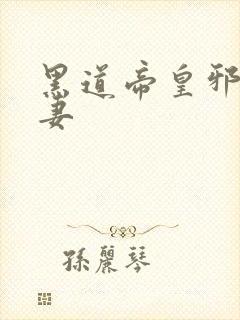 黑道帝皇邪
妻
孫麗琴